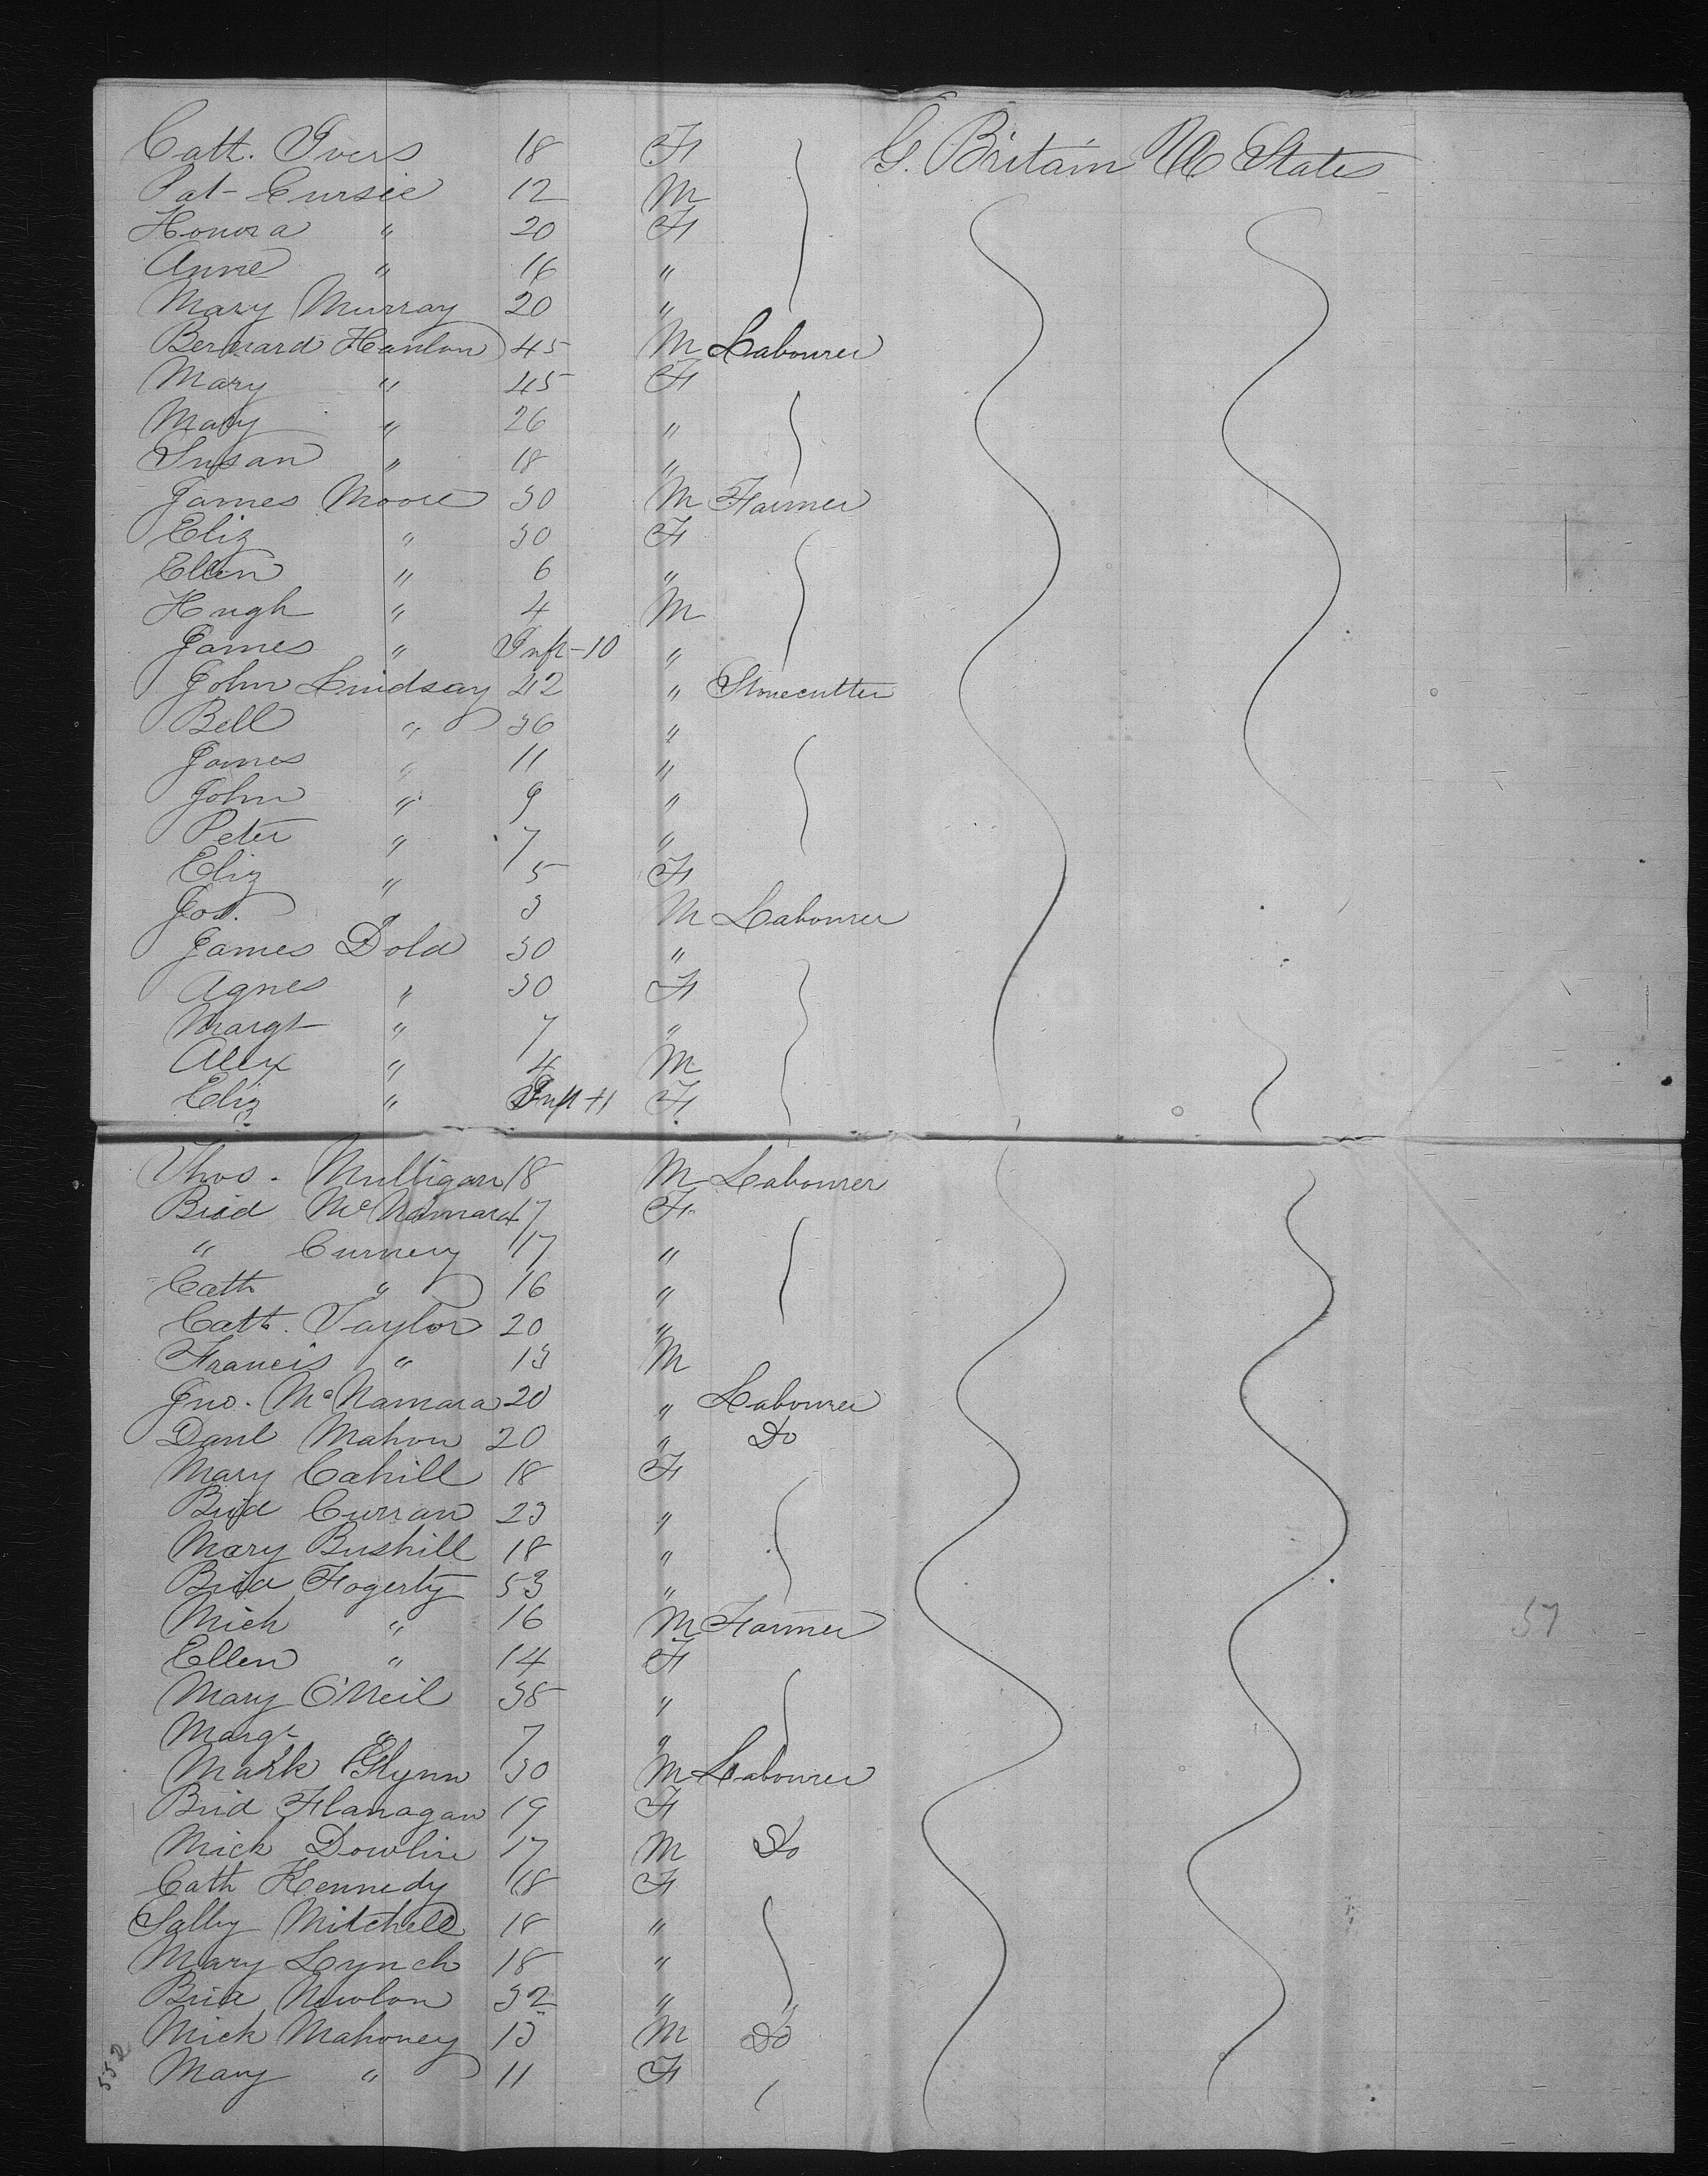 Cath. Ivers 18 F G. Britain U States
Pat Cursie 12 M
Honora " 20 F
Anne " 16 "
Mary Murray 20 "
Bernard Hanlon 45 M Labourer
Mary " 45 F
Mary " 26 "
Susan " 18 "
James Moore 30 M Farmer
Eliz " 30 F
Ellen " 6 "
Hugh " 4 M
James " Inft-10 "
John Lindsay 42 " Stonecutter
Bell " 36 "
James " 11 "
John " 9 "
Peter " 7 "
Eliz " 5 F
Jos. " 3 M Labourer
James Dold 30 "
Agnes " 30 F
Margt " 7 "
Alex " 4 M
Eliz " Inft 11 F
Thos. Mulligan 18 M Labourer
Brid McNamara 17 F
" Curnery 17 "
Cath " 16 "
Cath. Taylor 20 "
Francis " 13 M
Jno. McNamara 20 " Labourer
Danl Mahon 20 " Do
Mary Cahill 18 F
Brid Curran 23 "
Mary Bushill 18 "
Brid Fogerty 53 "
Mich " 16 M Farmer
Ellen " 14 F
Mary O'Neil 38 "
Margt " 7 "
Mark Glynn 30 M Labourer
Brid Flanagan 19 F
Mick Dowlin 17 M Do
Cath Kennedy 18 F
Sally Mitchell 18 "
Mary Lynch 18 "
Brid Nowlon 32 "
Mick Mahoney 13 M Do
Mary " 11 F
57